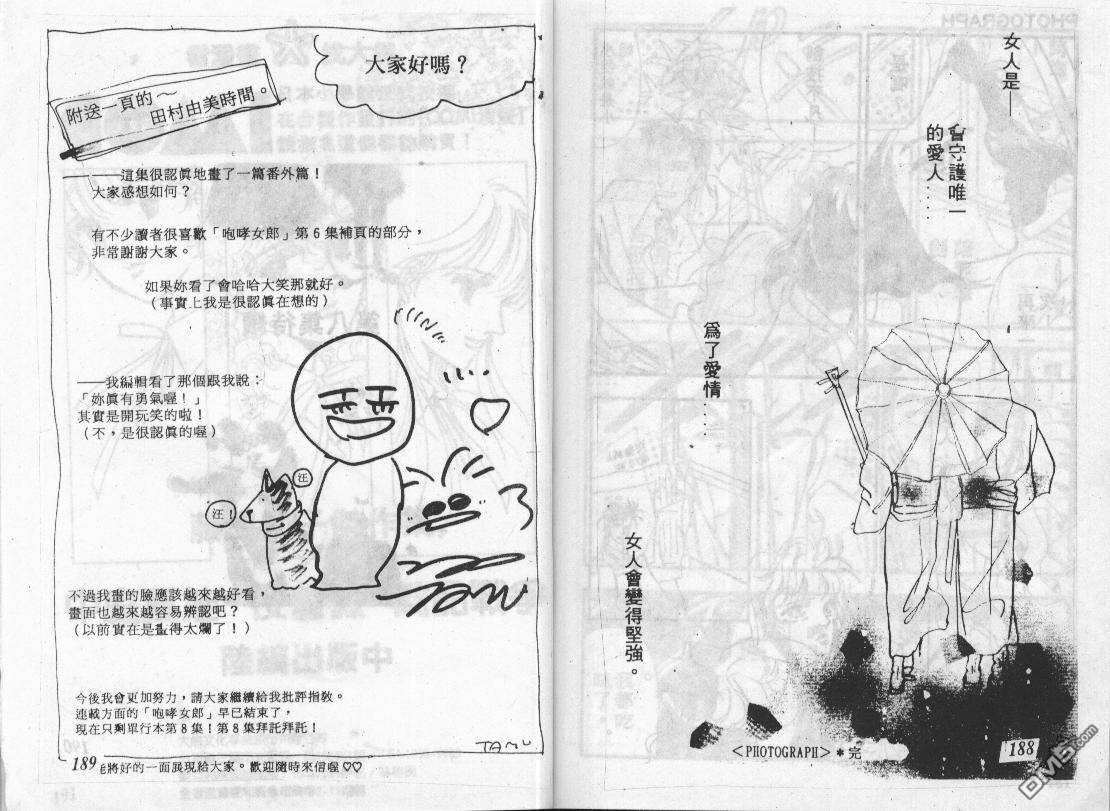 女人是——
會守護唯一
的愛人.....
爲了愛情....
女人會變得堅強。
<PHOTOGRAPH>＊完
188
大家好嗎？
附送一頁的～
田村由美時間。
——這集很認眞地畫了一篇番外篇！
大家感想如何？
有不少讀者很喜歡「咆哮女郎」第６集補頁的部分，
非常謝謝大家。
如果妳看了會哈哈大笑那就好。
（事實上我是很認眞在想的）
——我編輯看了那個跟我說：
「妳眞有勇氣喔！」
其實是開玩笑的啦！
（不，是很認眞的喔）
汪
汪！
不過我畫的臉應該越來越好看，
畫面也越來越容易辨認吧？
（以前實在是畫得太爛了！）
今後我會更加努力，請大家繼續給我批評指敎。
連載方面的「咆哮女郎」早已結束了，
現在只剩單行本第８集！第８集拜託拜託！
TAMU
189
將好的一面展現給大家。歡迎隨時來信喔♡♡
DM5.com